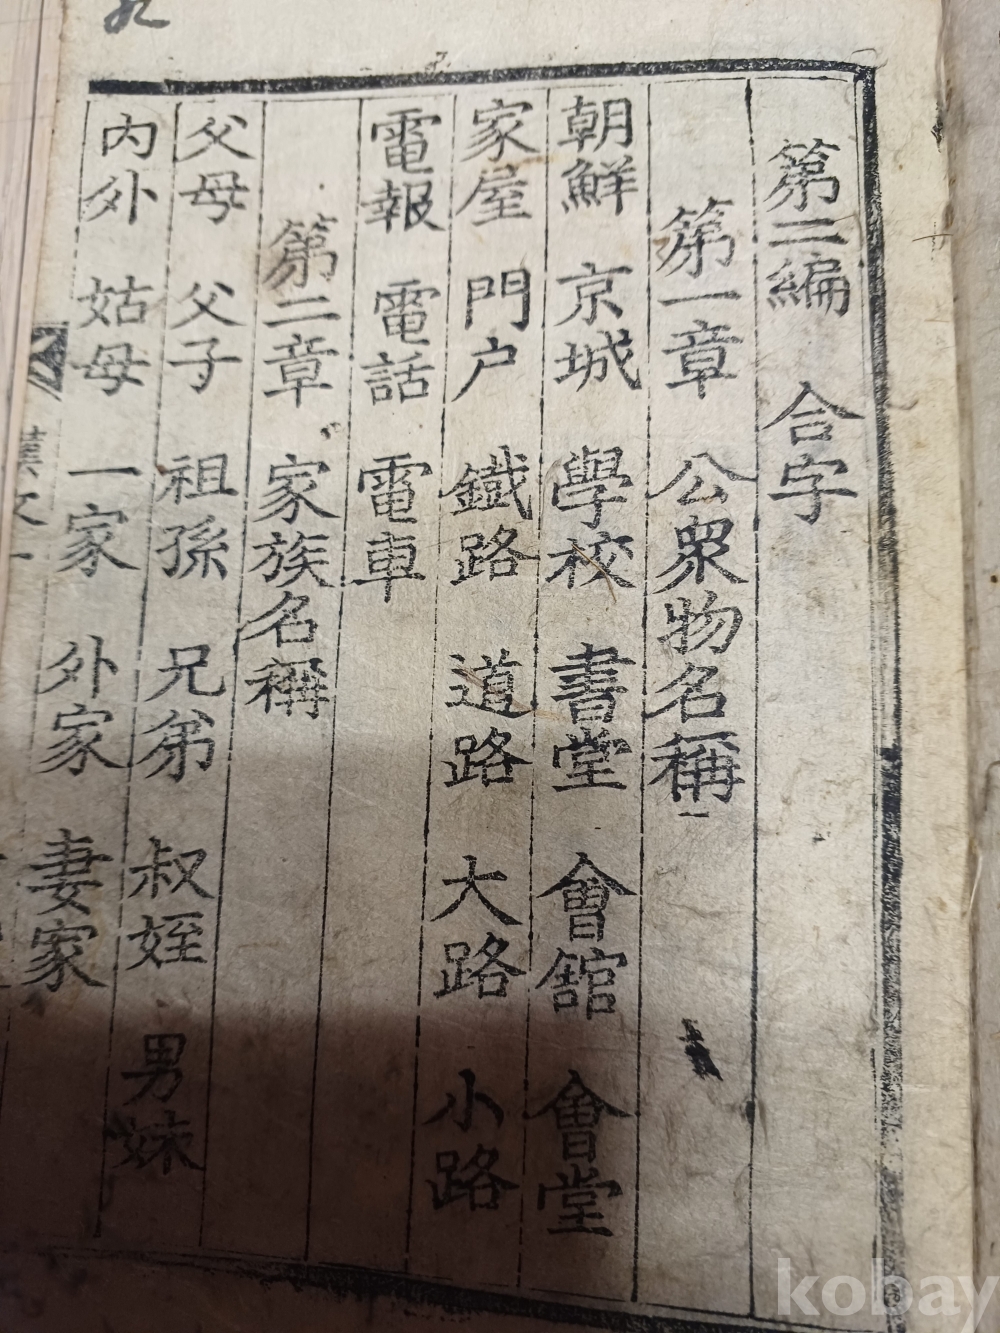 第二編 合字
第一章 公衆物名稱
朝鮮 京城 學校 書堂 會舘 會堂
家屋 門户 鐵路 道路 大路 小路
電報 電話 電車
第二章 家族名稱
父母 父子 祖孫 兄弟 叔姪 男妹
內外 姑母 一家 外家 妻家
kobay